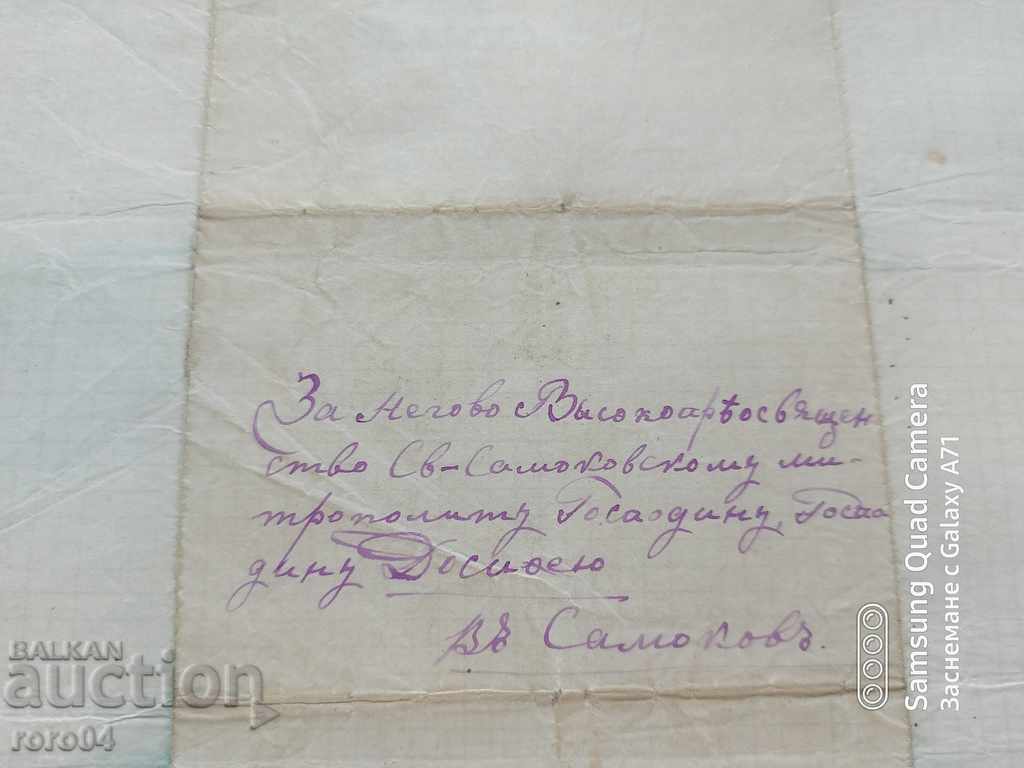 За Негово Высокопрѣосвящен
ство Св-Самоковскому ми-
трополиту Господину, Госпо
дину Досиѳею
въ Самоковъ.
BALKAN
auction
roro04
Samsung Quad Camera
Заснемане с Galaxy A71